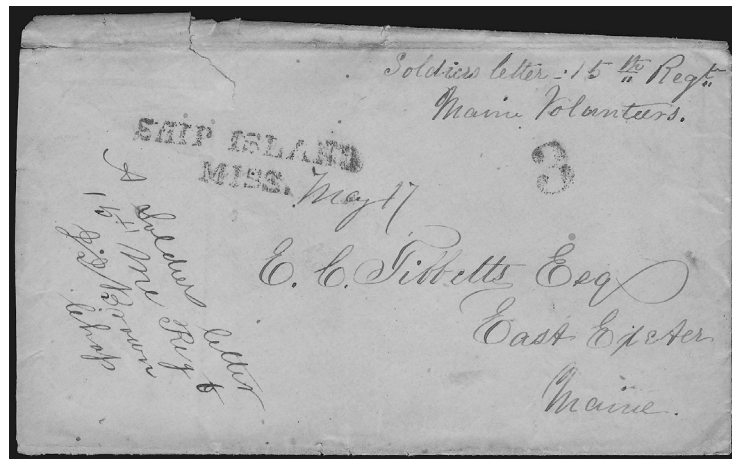 Soldiers letter - 15th Regt
Maine Volunteers.
SHIP ISLAND
MISS.
3
May 17
E. C. Tibbetts Esq
East Exeter
Maine.
A Soldiers letter
15t Me Regt
Brown
Chap